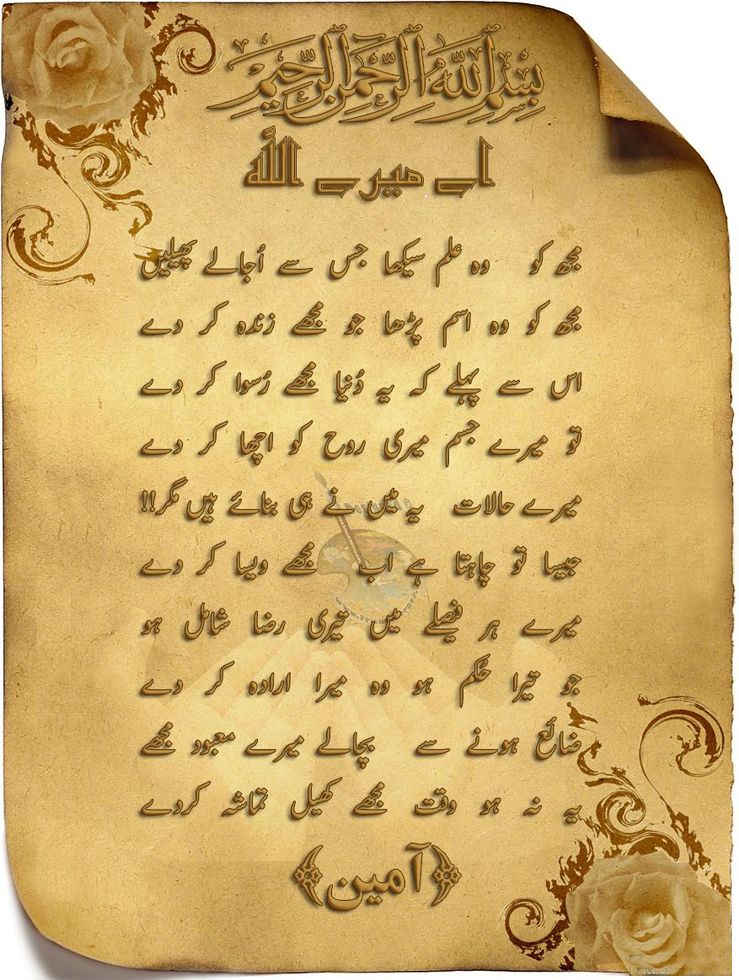 بِسْمِ اللهِ الرَّحْمٰنِ الرَّحِيْمِ
اے میرے اللہ
مجھ کو وہ علم سیکھا جس سے اُجالے پھیلیں
مجھ کو وہ اسم پڑھا جو مجھے زندہ کر دے
اس سے پہلے کہ یہ دُنیا مجھے رُسوا کر دے
تو میرے جسم میری روح کو اچھا کر دے
میرے حالات یہ میں نے ہی بنائے ہیں مگر!!
جیسا تو چاہتا ہے اب مجھے ویسا کر دے
میرے ہر فیصلے میں تیری رضا شامل ہو
جو تیرا حُکم ہو وہ میرا ارادہ کر دے
ضائع ہونے سے بچالے میرے معبود مجھے
یہ نہ ہو وقت مجھے کھیل تماشہ کردے
﴿آمین﴾